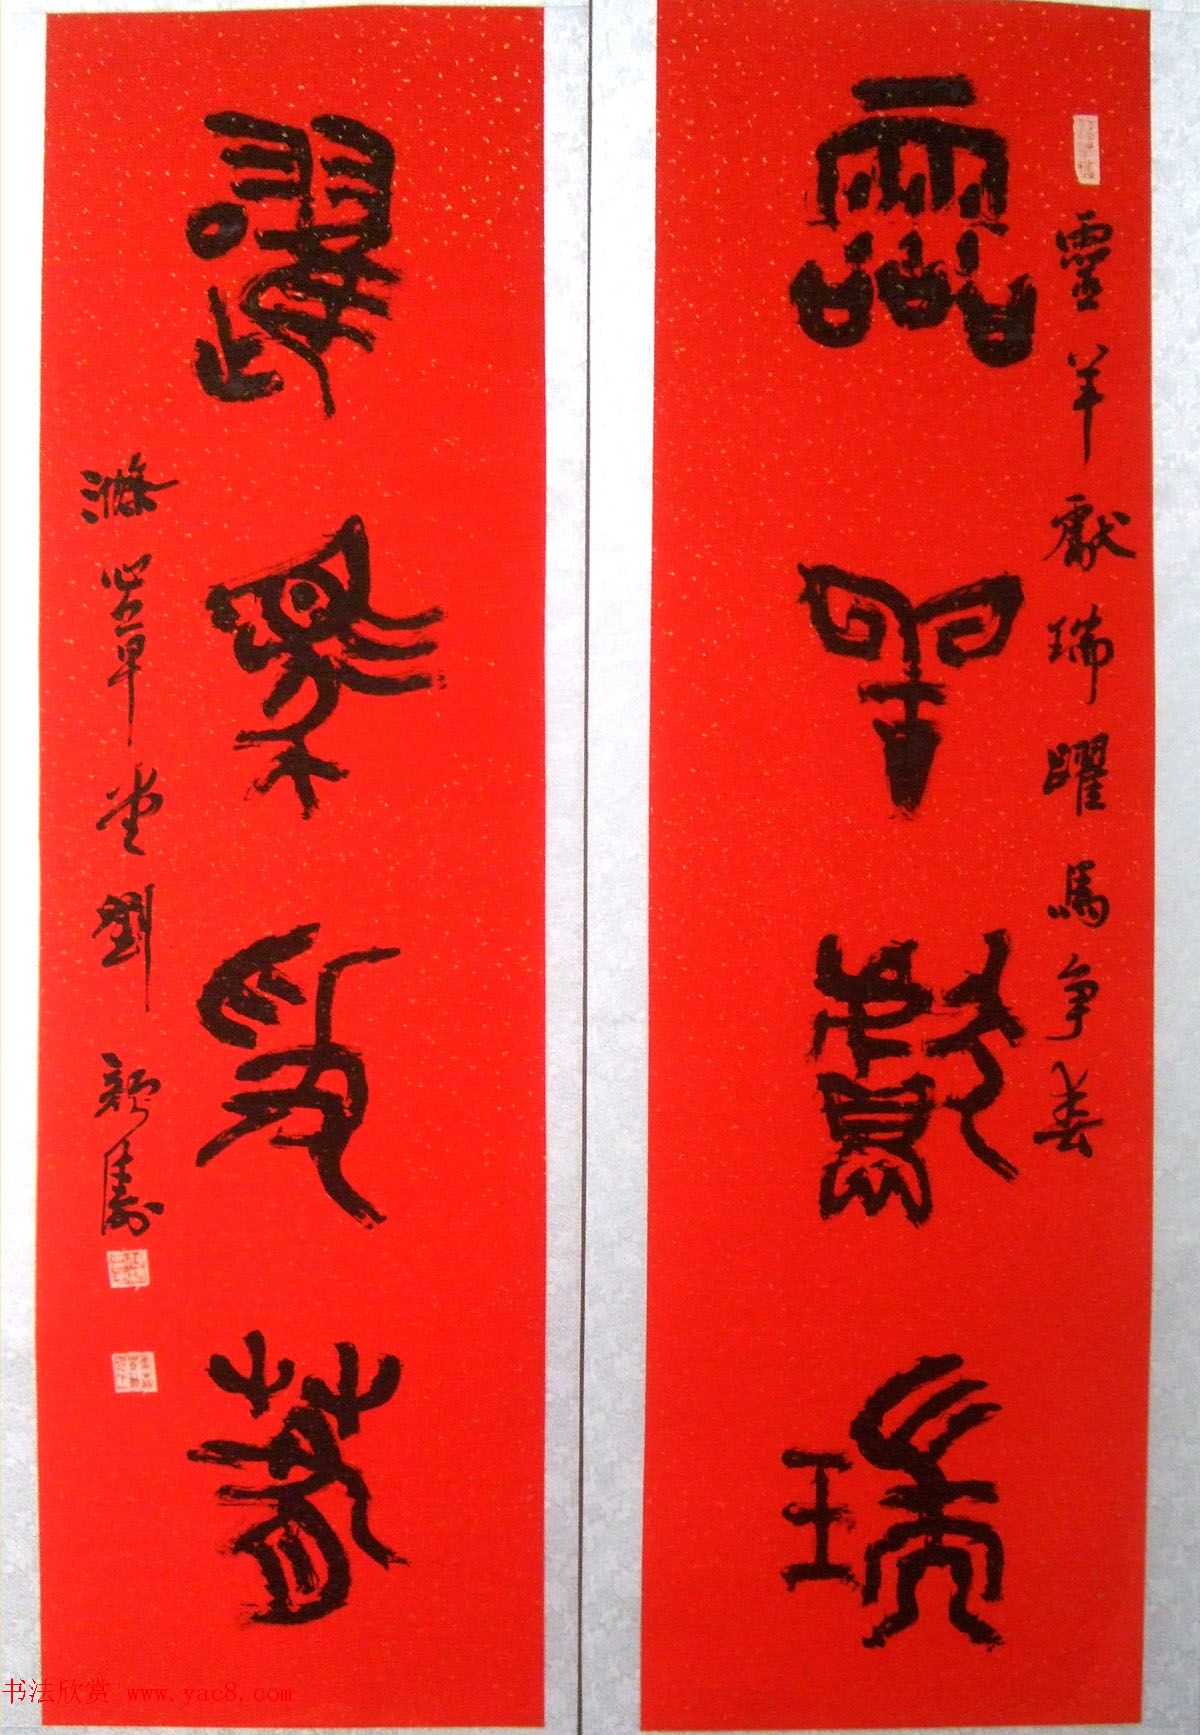 靈羊獻瑞躍馬爭春
靈羊獻瑞
躍馬爭春
滌心草堂劉新濤
书法欣赏 www.yac8.com